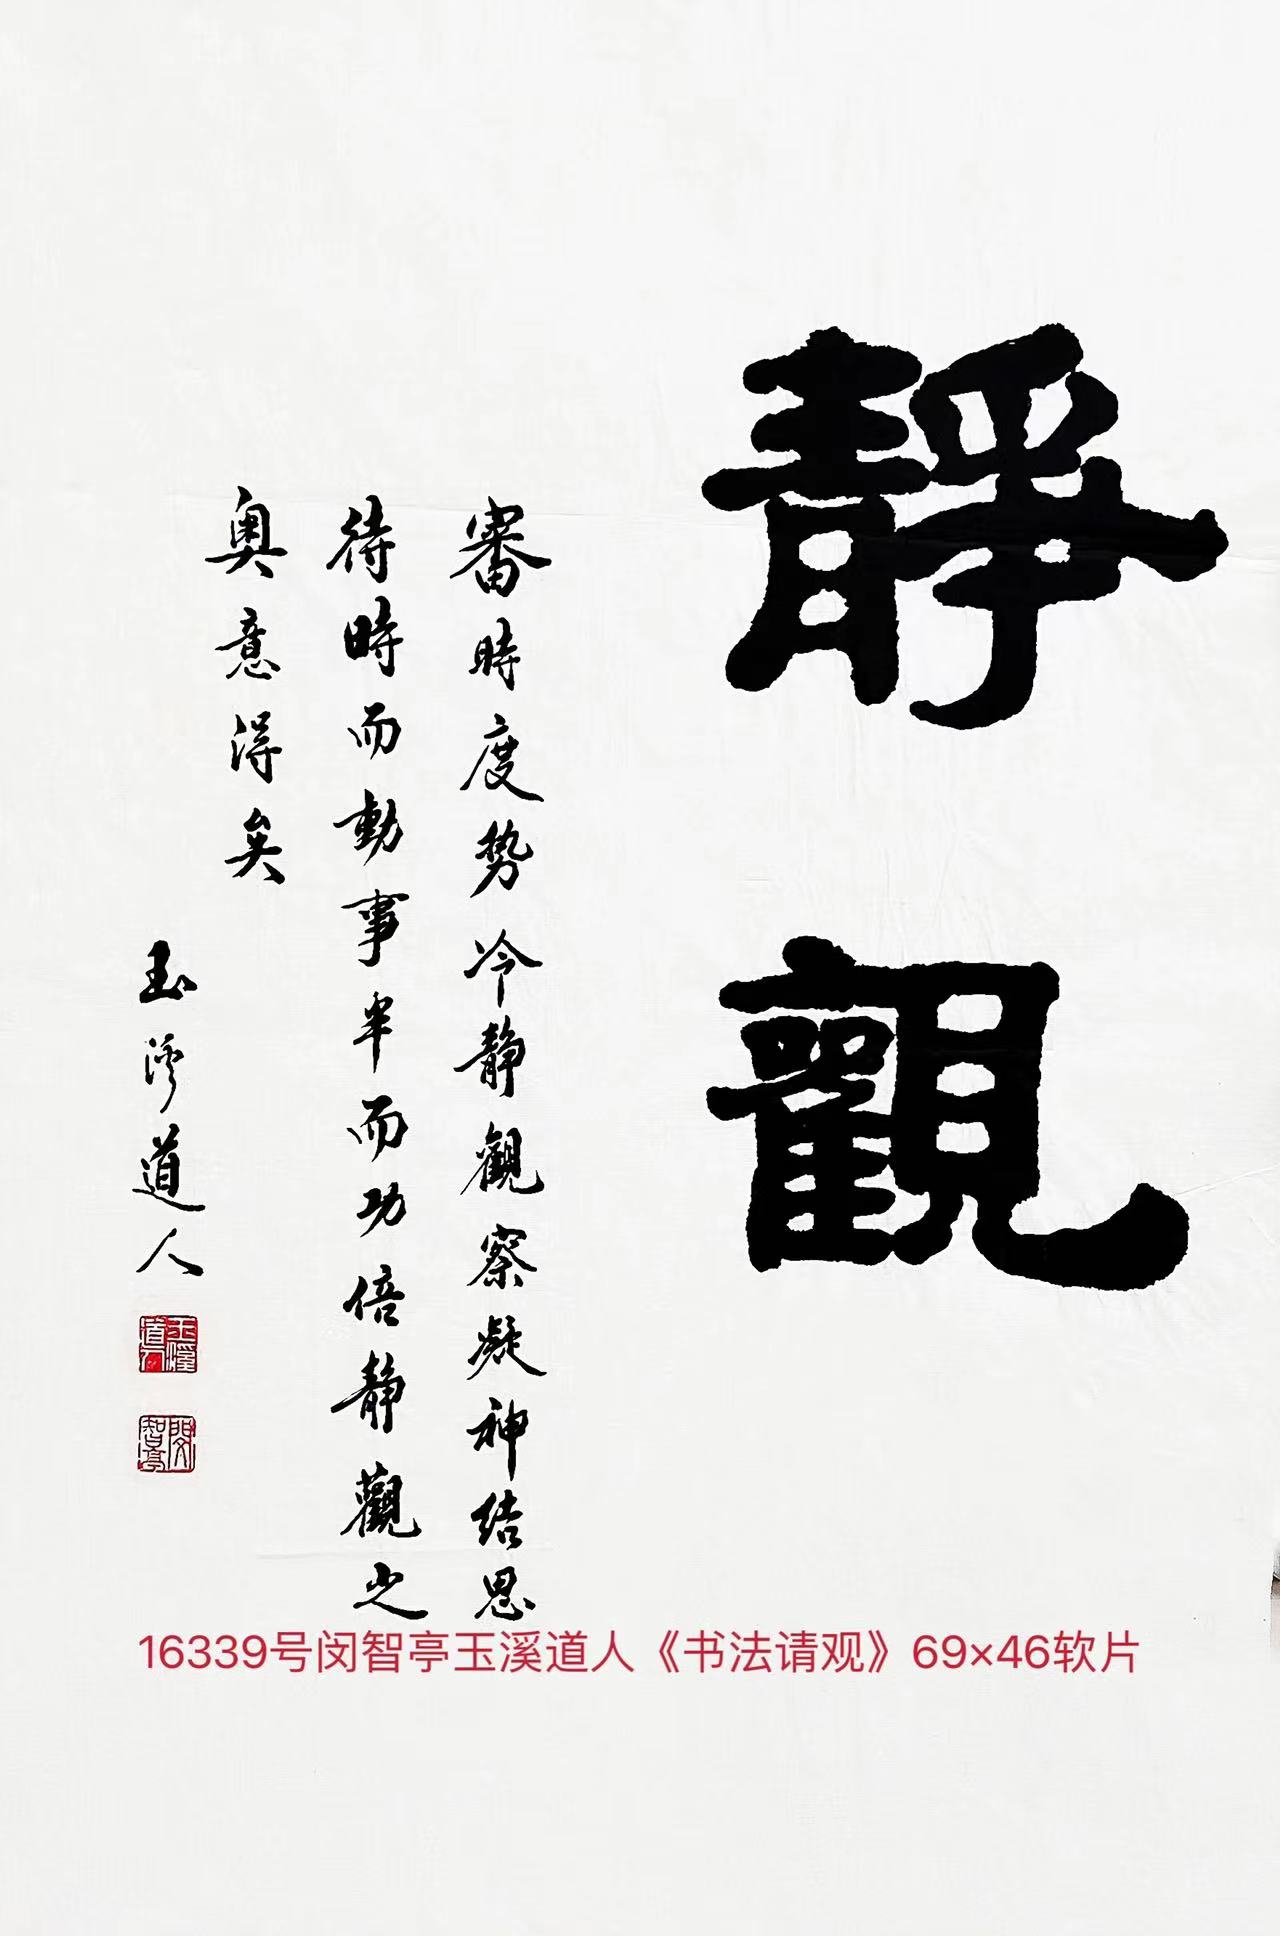 靜觀
審時度势冷静觀察凝神结思
待時而動事半而功倍静觀之
奥意得矣
玉溪道人
玉溪道人
闵智亭
16339号闵智亭玉溪道人《书法请观》69×46软片